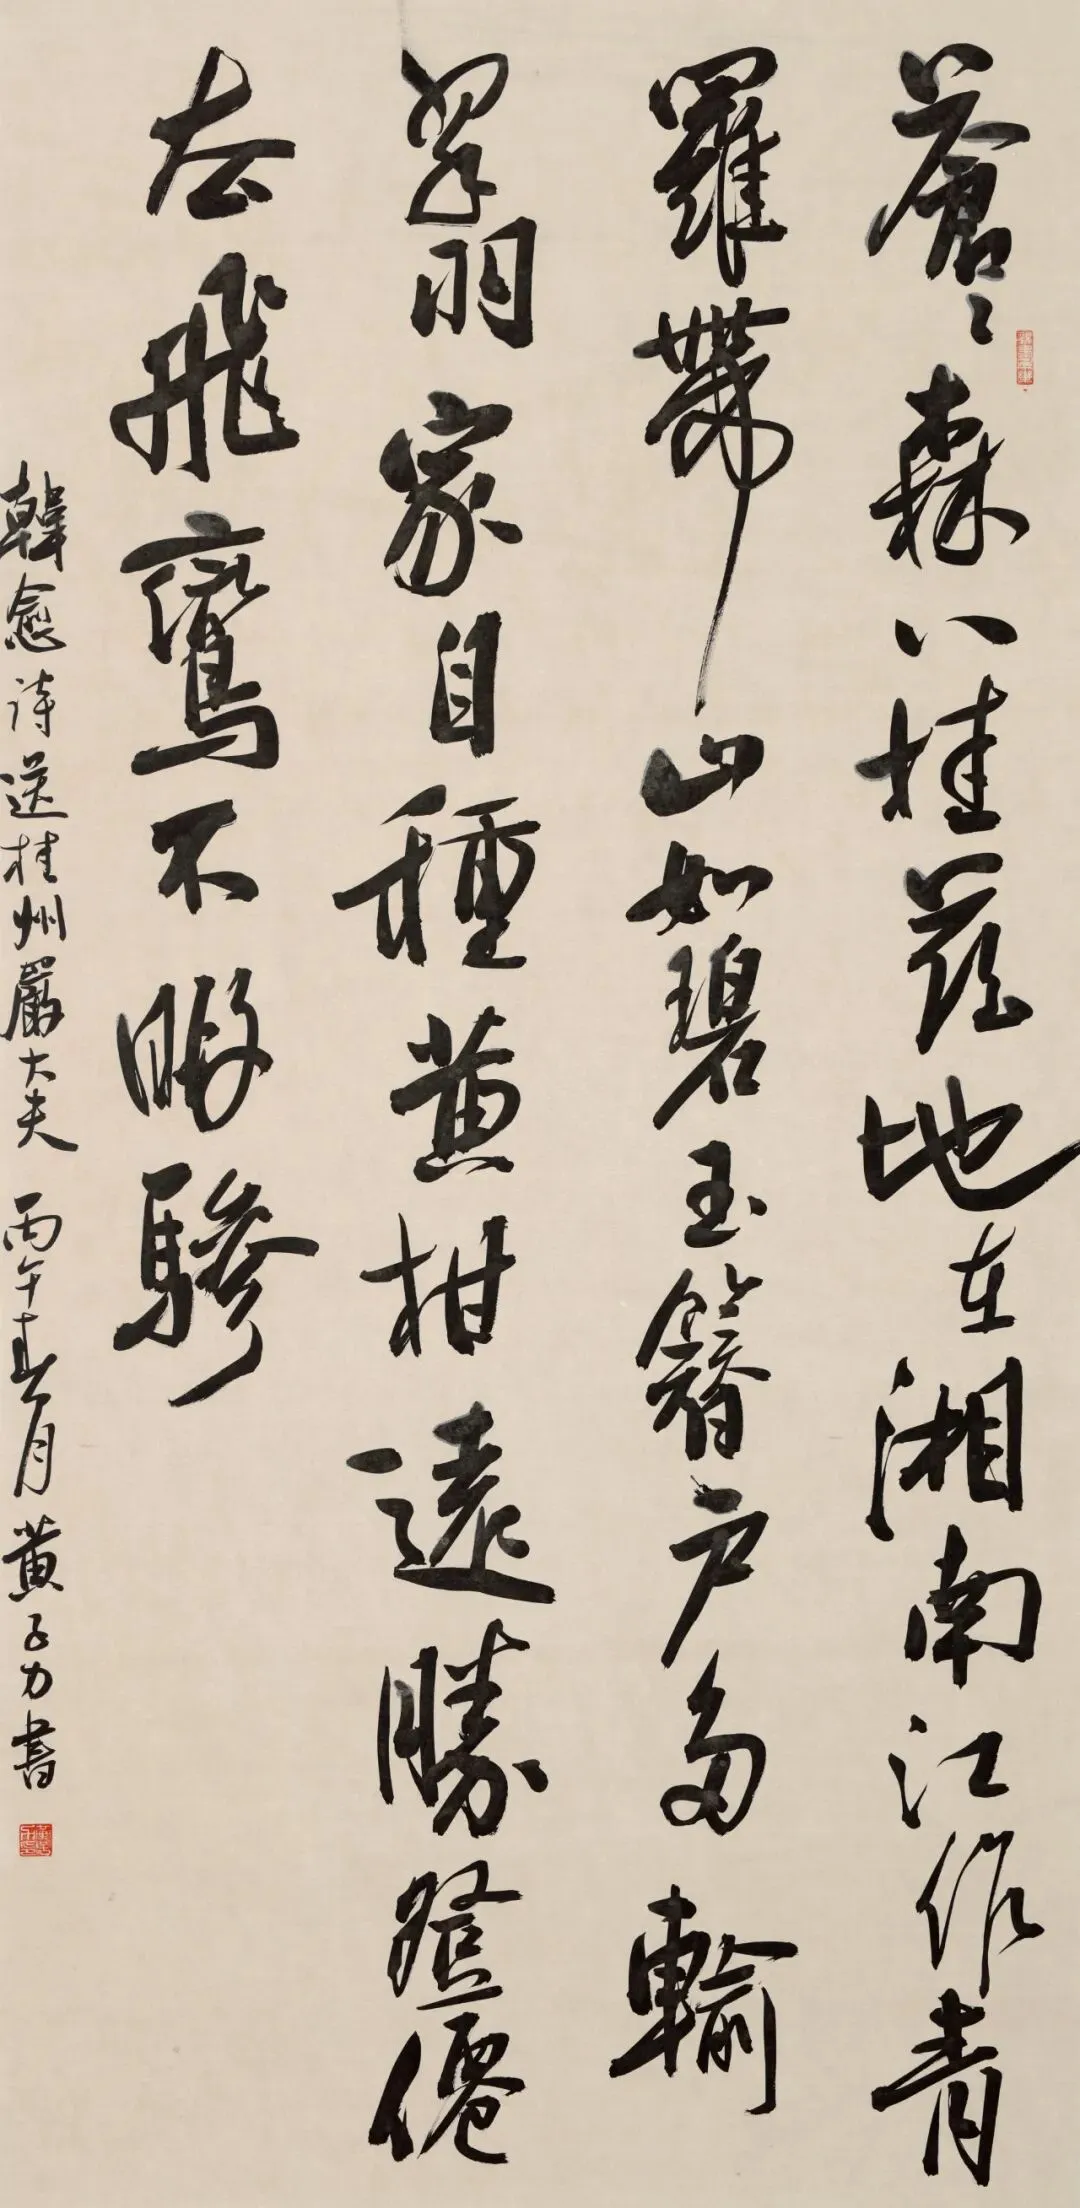 蒼〻森八桂茲地在湘南江作青
羅帶山如碧玉簪户多輸
翠羽家自種黄柑遠勝登僊
去飛鸞不暇驂
韓愈詩送桂州嚴大夫 丙午春月 黄子力書